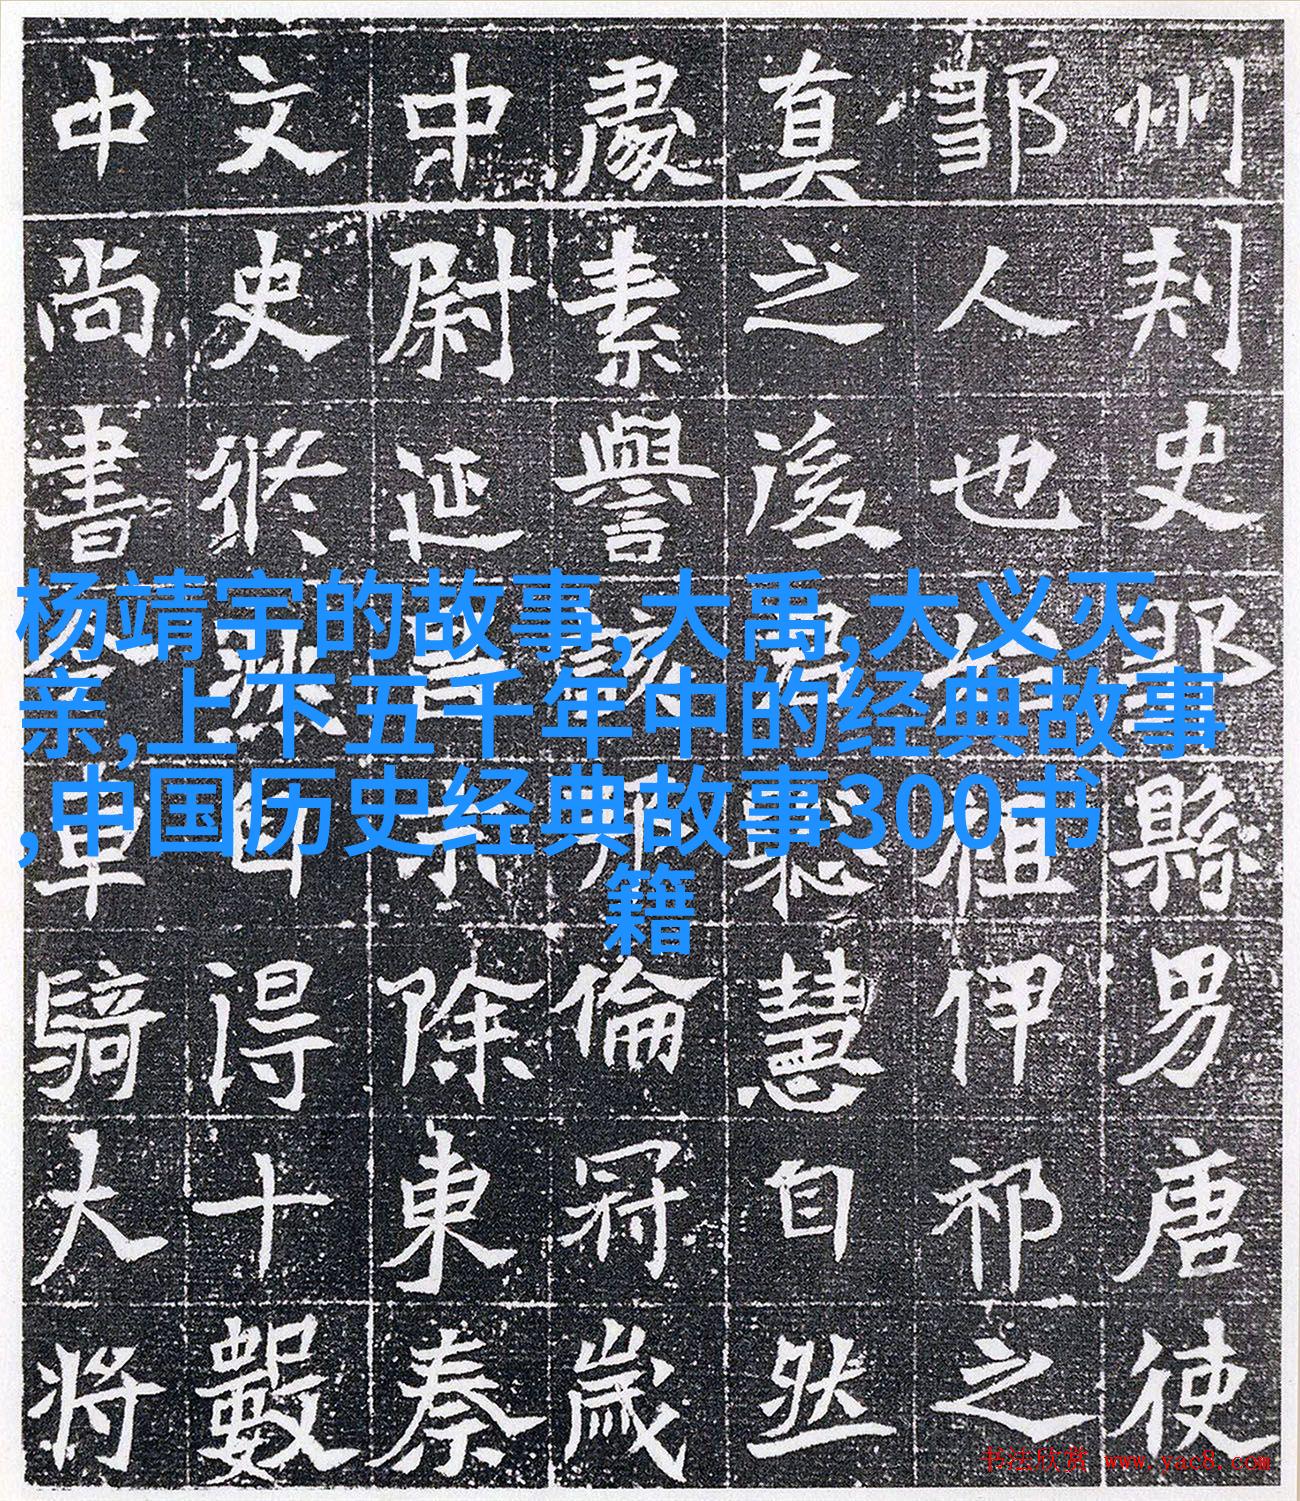 州刾史縣男唐使
鄒人也祖伊祁之
真之後聡慧自然
處素譽倫冠歲
中尉延除東秦
文史修得十數
中尚書車騎大將
杨靖宇的故事,大禹,大义灭
亲,上下五千年中的经典故事
,中国历史经典故事300书
籍
书法欣赏 www.yac8.com